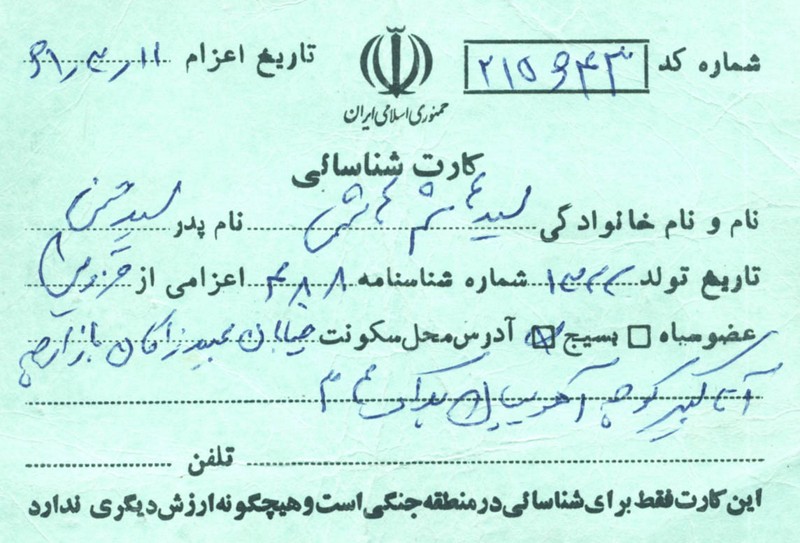 شماره کد ۲۱۵۶۴۳ تاریخ اعزام ۶۱٫۳٫۱۱
جمهوری اسلامی ایران
کارت شناسائی
نام و نام خانوادگی سید هاشم هاشمی نام پدر سید حسن
تاریخ تولد ۱۳۴۲ شماره شناسنامه ۴۸۸ اعزامی از قزوین
عضو سپاه بسیج آدرس محل سکونت خیابان عبیدزاکان بازارچه
کوچه پلاک
تلفن
این کارت فقط برای شناسائی در منطقه جنگی است و هیچگونه ارزش دیگری ندارد